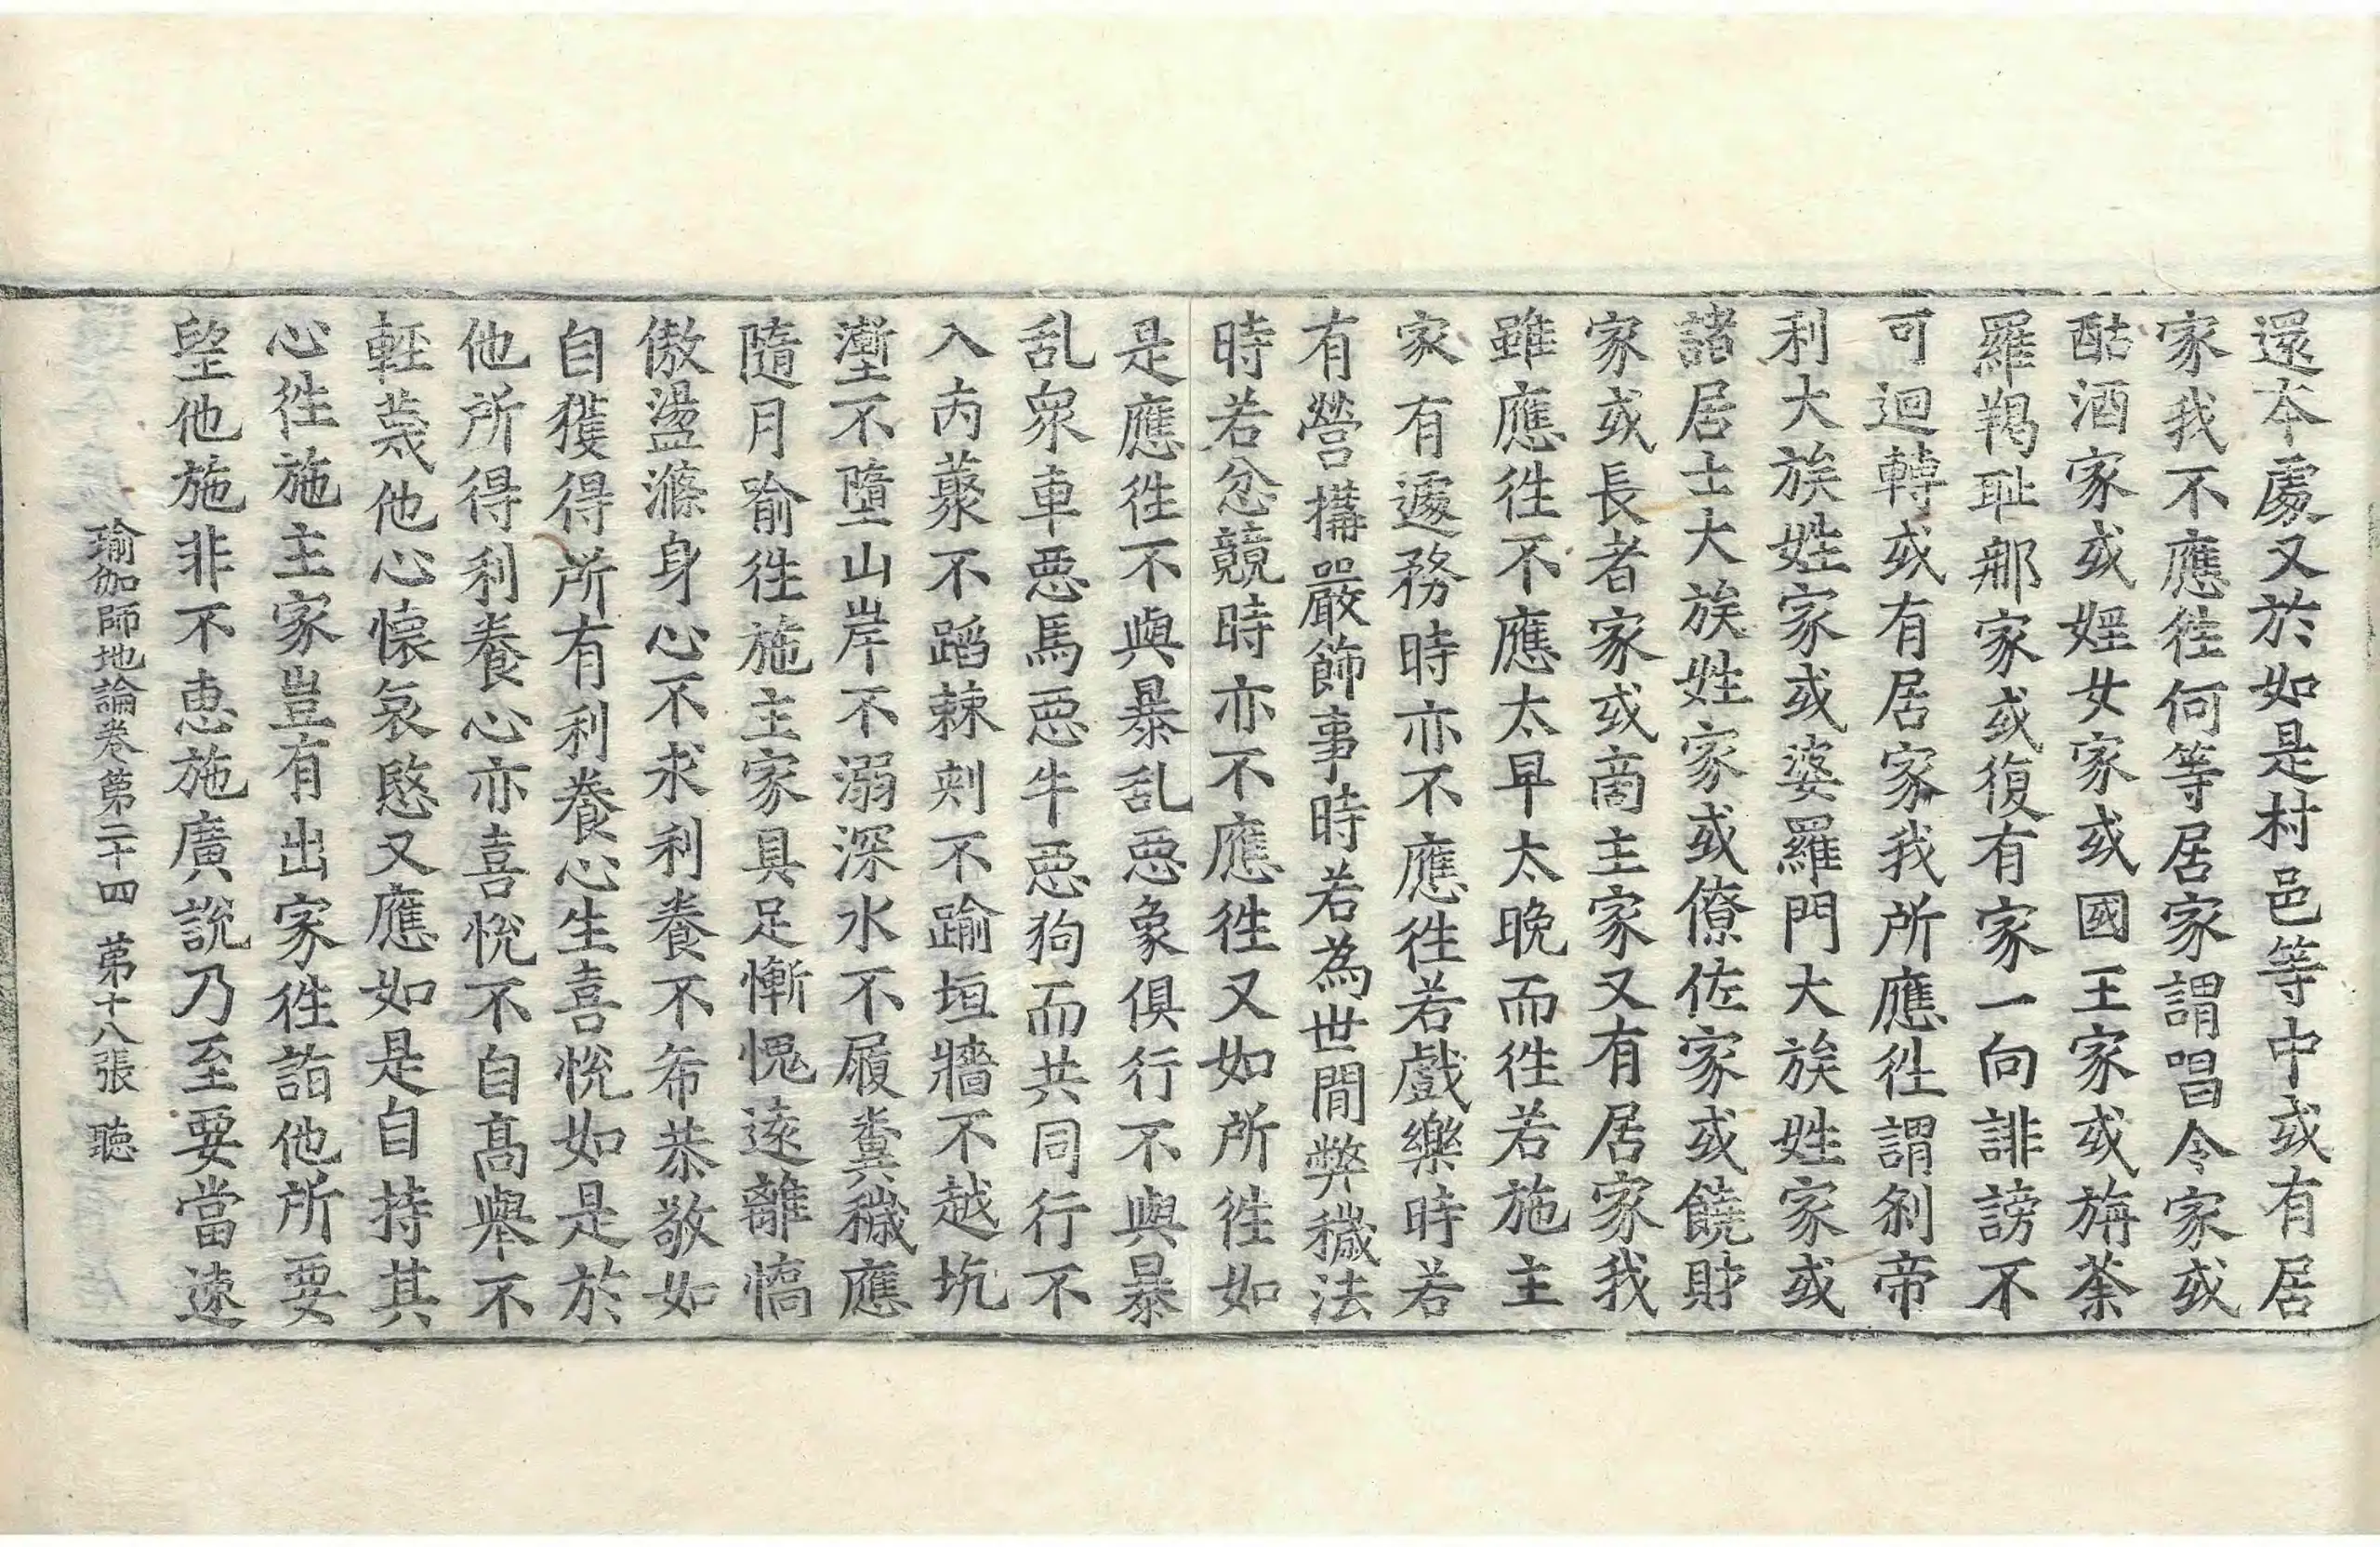 還本處又於如是村邑等中或有居
家我不應往何等居家謂唱令家或
酤酒家或婬女家或國王家或旃荼
羅羯耻那家或復有家一向誹謗不
可迴轉或有居家我所應往謂刹帝
利大族姓家或婆羅門大族姓家或
諸居士大族姓家或僚佐家或饒財
家或長者家或商主家又有居家我
雖應往不應太早太晚而往若施主
家有遽務時亦不應往若戲樂時若
有營搆嚴飾事時若為世間弊穢法
時若忿競時亦不應往又如所往如
是應往不與暴乱惡象俱行不與暴
乱衆車惡馬惡牛惡狗而共同行不
入内藂不蹈棘刺不踰垣牆不越坑
壍不墮山岸不溺深水不履糞穢應
隨月喻往施主家具足慚愧遠離憍
傲盪滌身心不求利養不希恭敬如
自獲得所有利養心生喜悅如是於
他所得利養心亦喜悅不自高舉不
輕蔑他心懷哀愍又應如是自持其
心往施主家豈有出家往詣他所要
望他施非不惠施廣說乃至要當速
瑜伽師地論卷第二十四 第十八張 聽